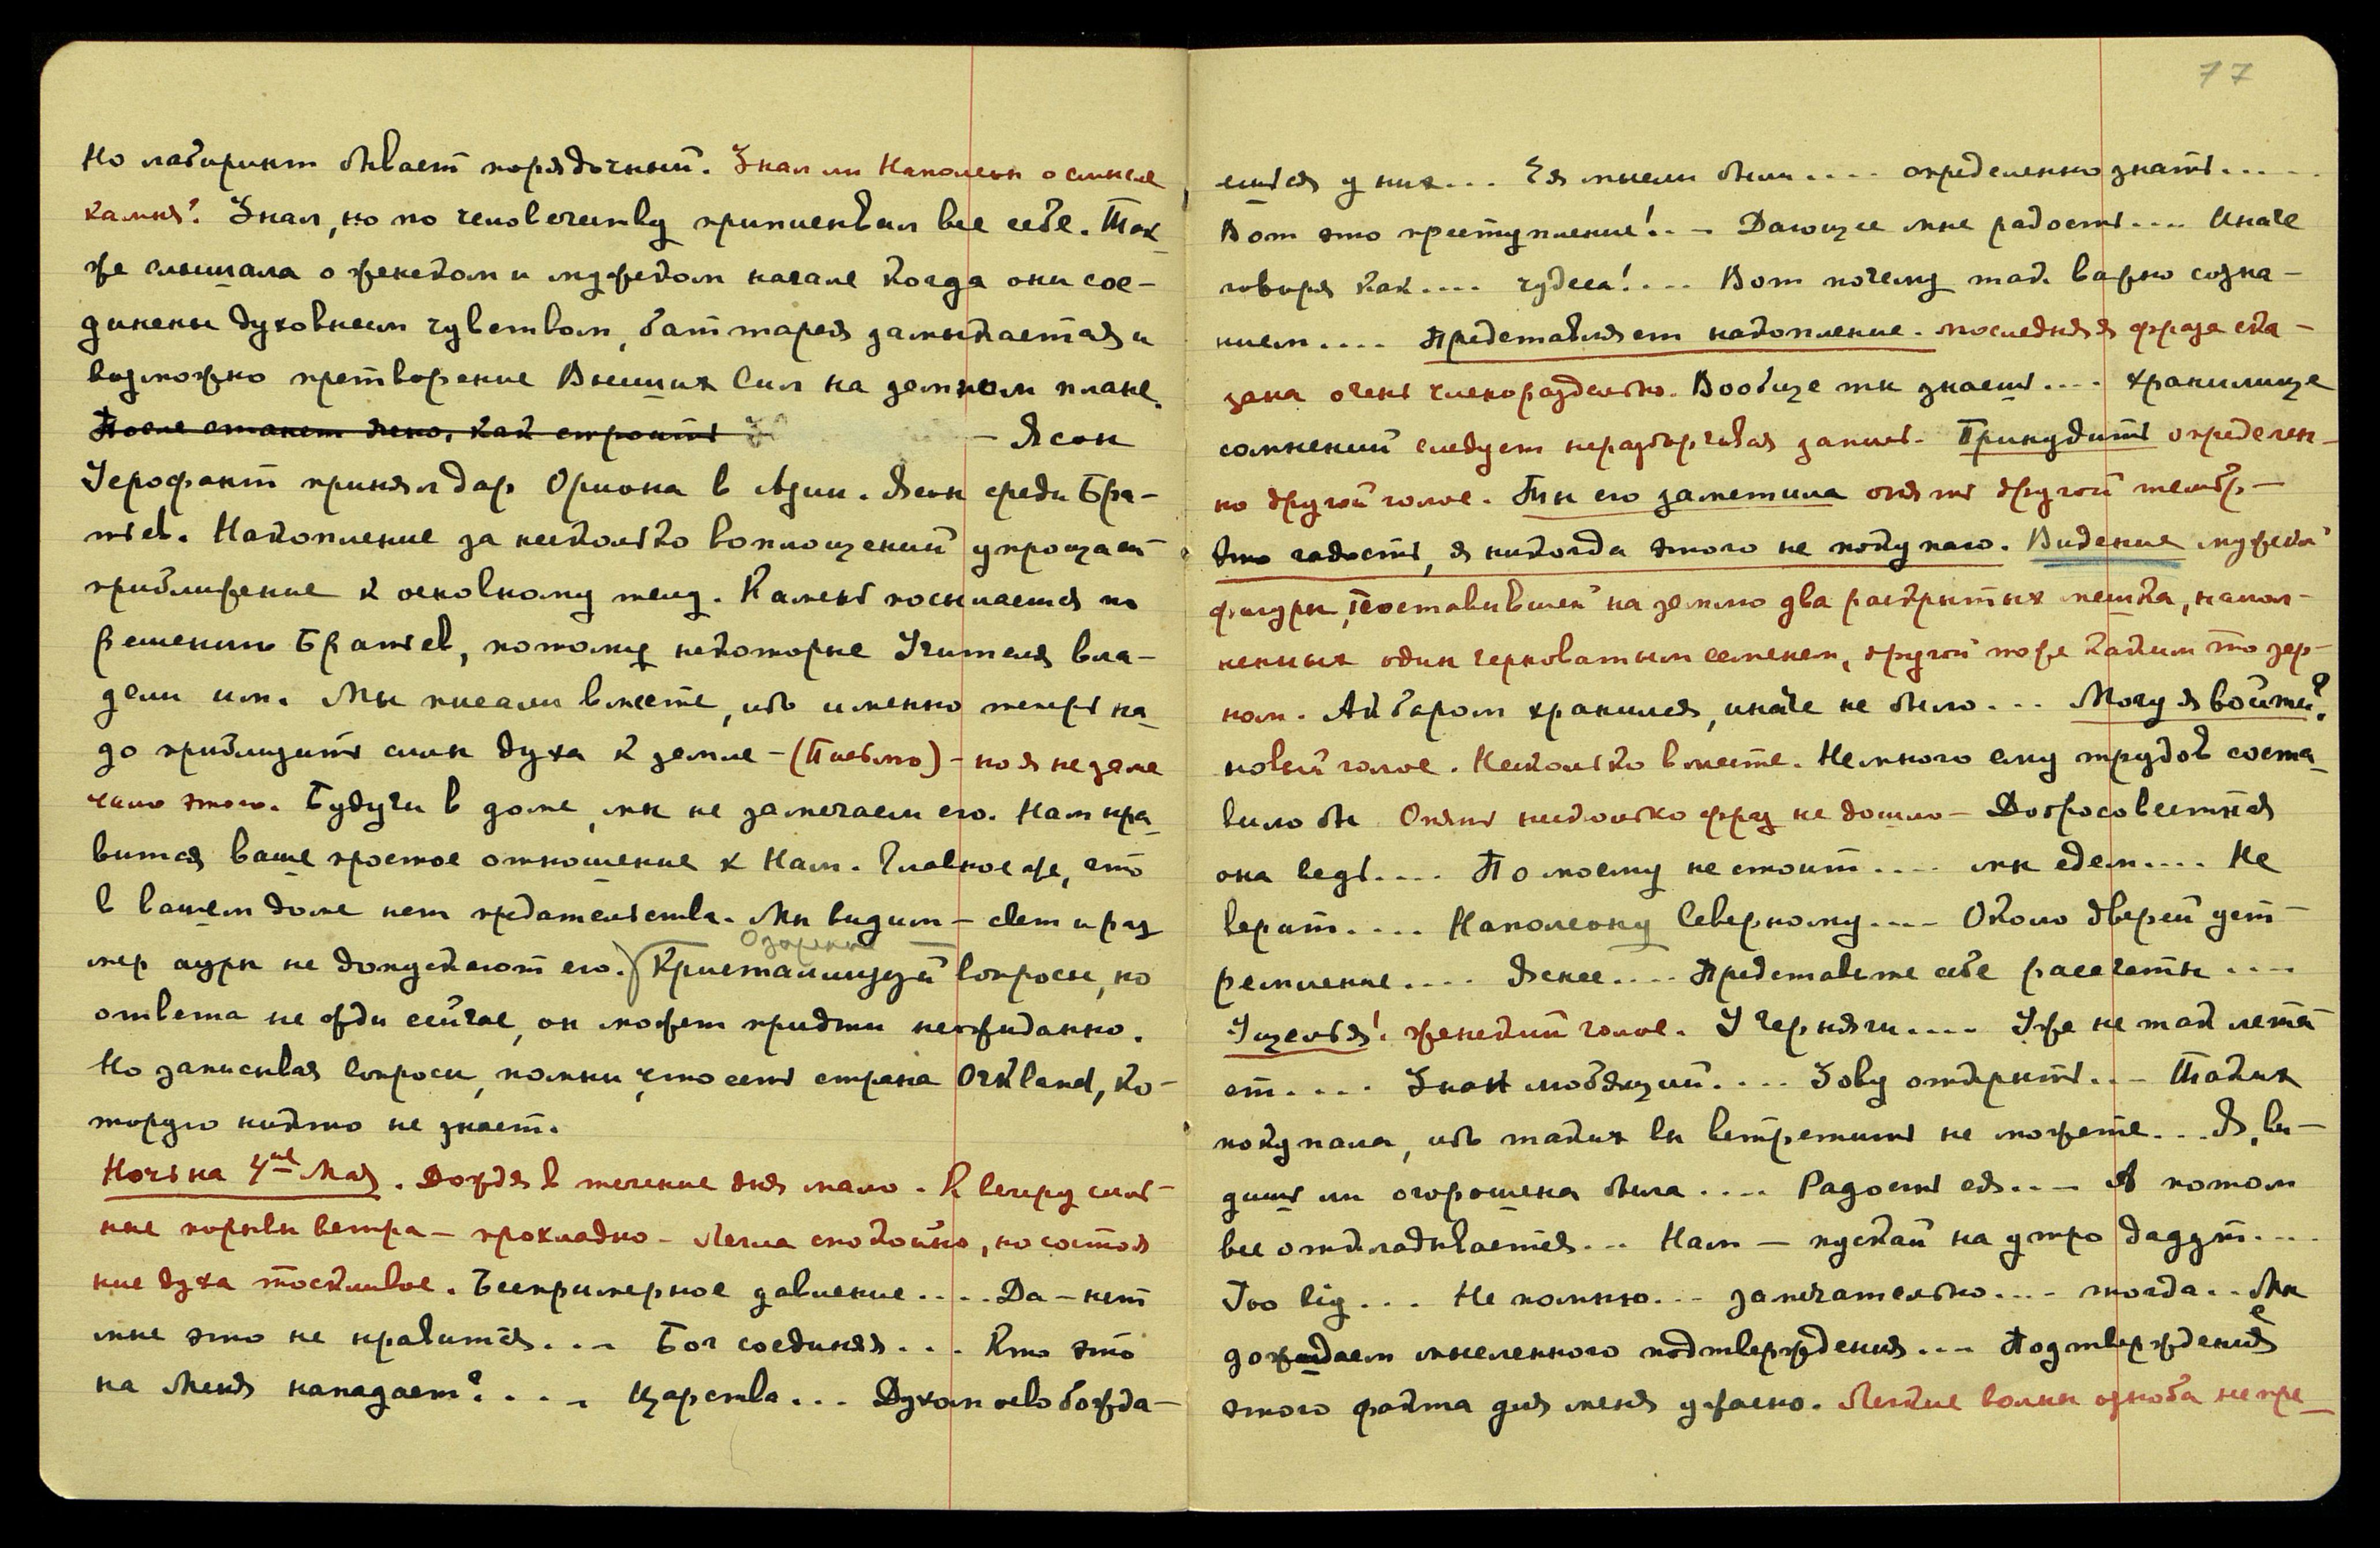 Но лабиринт бывает порядочный. Знал ли Наполеон о смысле
камня? Знал, но по человечеству приписывал все себе. Так
же слышала о женском и мужском начале когда они сое-
динены духовным чувством, баттарея замыкается и
возможно претворение Высших Сил на земном плане.
После станет ясно, как строить
— Ясон
Іерофант принял дар Ориона в Азии. Ясон среди Бра-
тьев. Накопление за несколько воплощений упрощает
приближение к основному телу. Камень посылается по
решению Братьев, потому некоторые Учителя вла-
дели им. Мы писали вместе, ибо именно теперь на-
до приблизить силы духа к земле — (Письмо) — но я не заме
чаю этого. Будучи в доме, мы не замечаем его. Нам нра-
вится ваше простое отношение к Нам. Главное же, что
в вашем доме нет предательства. Мы видим — свет и раз
Озарения
мер ауры не допускают его. Кристаллизуй вопросы, но
ответа не жди сейчас, он может придти неожиданно.
Но записывая вопросы, помни, что есть страна Orkland, ко-
торую никто не знает.
Ночь на 4ое Мая. Дождя в течение дня мало. К вечеру силь-
ные порывы ветра — прохладно — Легла спокойно, но состоя
ние духа тоскливое. Беспримерное давление.... Да — нет
мне это не нравится... Бог соединяя... Кто это
на Меня нападает?.... Царства... Духом освобожда-
77
ешься у них... Ея мысли были.... определенно знать.....
Вот это преступление!.. — Дающее мне радость.... Иначе
говоря как.... чудеса!.... Вот почему так важно созна-
нием.... Представляет накопление. последняя фраза ска-
зана очень членораздельно. Вообще ты знаешь.... хранилище
сомнений следует неразборчивая запись. Принудить определен-
но другой голос. Ты его заметила опять другой тембр —
Это гадость, я никогда этого не покупаю. Видение мужской
фигуры, поставившей на землю два раскрытых мешка, напол-
ненных один черноватым семенем, другой тоже каким то зер-
ном. Амбаром хранился, иначе не было... Могу я войти?
новый голос. Несколько вместе. Немного ему трудов соста-
вило бы Опять несколько фраз не дошло — Добросовестная
она ведь.... По моему не стоит.... мы едем.... Не
верит.... Наполеону Северному.... Около дверей уст-
ремление.... Яснее.... Представьте себе рассчеты....
Ущелья! женский голос. У Черняги.... Уже не так лета
ет.... Знак любящий.... Зову открыть... Таких
покупала, ибо таких вы встретить не можете... Я, ви-
дишь ли огорошена была.... Радость ея.... А потом
все откладывается... Нам — пускай на утро дадут....
Too big... Не помню... замечательно.... тогда.. Мы
дождаем мысленного подтверждения... Подтверждение
этого факта для меня ужасно. Легкие волны озноба непре-